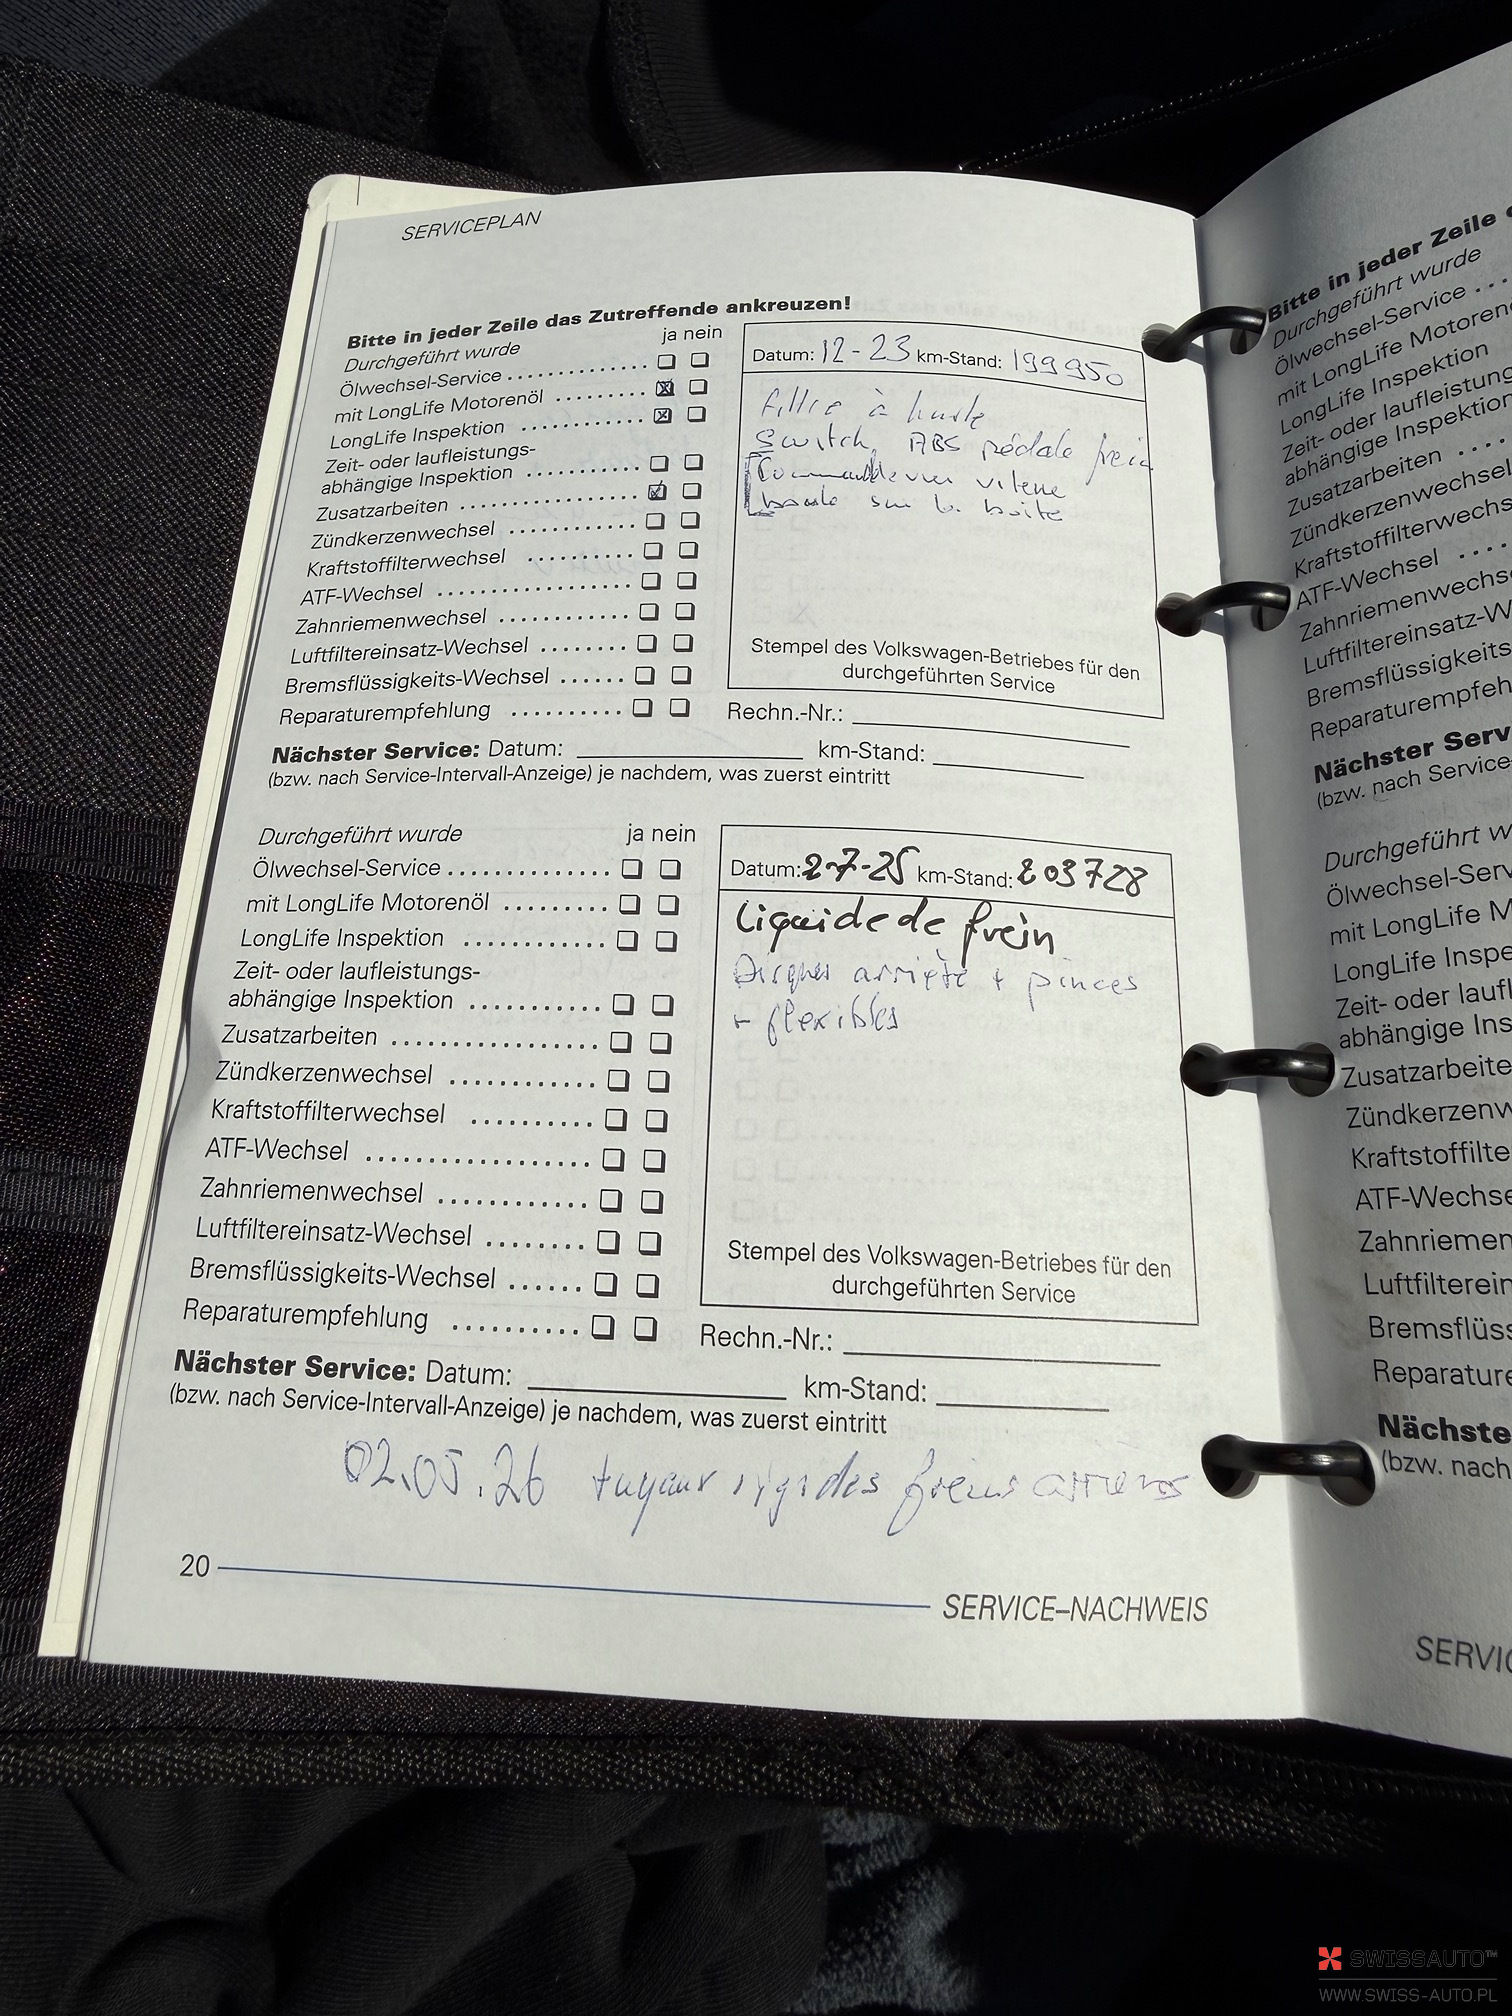 SERVICEPLAN
Bitte in jeder Zeile das Zutreffende ankreuzen!
Durchgeführt wurde ja nein
Ölwechsel-Service
mit LongLife Motorenöl
LongLife Inspektion
Zeit- oder laufleistungs-
abhängige Inspektion
Zusatzarbeiten
Zündkerzenwechsel
Kraftstoffilterwechsel
ATF-Wechsel
Zahnriemenwechsel
Luftfiltereinsatz-Wechsel
Bremsflüssigkeits-Wechsel
Reparaturempfehlung
Datum: 12-23 km-Stand: 199950
filtre à huile
Switch, ABS pédale frein
sur la boite
Stempel des Volkswagen-Betriebes für den
durchgeführten Service
Rechn.-Nr.:
Nächster Service: Datum: km-Stand:
(bzw. nach Service-Intervall-Anzeige) je nachdem, was zuerst eintritt
Durchgeführt wurde ja nein
Ölwechsel-Service
mit LongLife Motorenöl
LongLife Inspektion
Zeit- oder laufleistungs-
abhängige Inspektion
Zusatzarbeiten
Zündkerzenwechsel
Kraftstoffilterwechsel
ATF-Wechsel
Zahnriemenwechsel
Luftfiltereinsatz-Wechsel
Bremsflüssigkeits-Wechsel
Reparaturempfehlung
Datum: 2-7-25 km-Stand: 203728
Liquide de frein
Disques arrière + pinces
+ flexibles
Stempel des Volkswagen-Betriebes für den
durchgeführten Service
Rechn.-Nr.:
Nächster Service: Datum: km-Stand:
(bzw. nach Service-Intervall-Anzeige) je nachdem, was zuerst eintritt
02.05.26 tuyaux rigides freins arrières
20
SERVICE–NACHWEIS
Bitte in jeder Zeile
Durchgeführt wurde
Ölwechsel-Service
mit LongLife Motoren
LongLife Inspektion
Zeit- oder laufleistung
abhängige Inspektion
Zusatzarbeiten
Zündkerzenwechsel
Kraftstoffilterwechs
ATF-Wechsel
Zahnriemenwechse
Luftfiltereinsatz-W
Bremsflüssigkeits
Reparaturempfeh
Nächster Serv
(bzw. nach Service
Durchgeführt w
Ölwechsel-Serv
mit LongLife M
LongLife Inspe
Zeit- oder laufl
abhängige Ins
Zusatzarbeite
Zündkerzenw
Kraftstoffilte
ATF-Wechse
Zahnriemen
Luftfilterein
Bremsflüss
Reparature
Nächste
(bzw. nach
SERVIC
SWISSAUTO™
WWW.SWISS-AUTO.PL